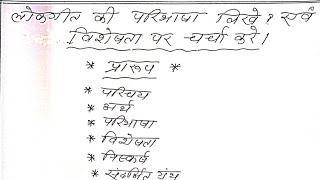 लोकगीत की परिभाषा लिखे? एवं
विशेषता पर चर्चा करे।
* प्रारूप *
* परिचय
* अर्थ
* परिभाषा
* विशेषता
* निस्कर्ष
* संदर्भित ग्रंथ